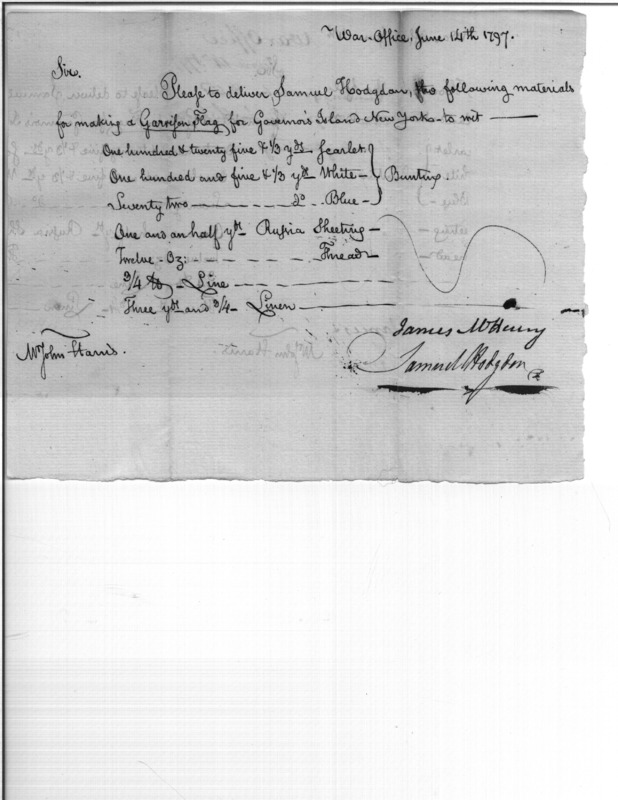 War-Office, June 14th 1797.
Sir.
Please to deliver Samuel Hodgdon, the following materials
for making a Garrison Flag, for Governor's Island New York - to wit —
One hundred & twenty five & 1/3 yds Scarlet
One hundred and five & 1/3 yds White - } Bunting.
Seventy two — do Blue -
One and an half yd - Russia Sheeting -
Twelve - Oz: — Thread -
3/4 lb - Line —
Three yds and 3/4 - Linen —
James McHenry
Mr John Harris.
Samuel Hodgdon